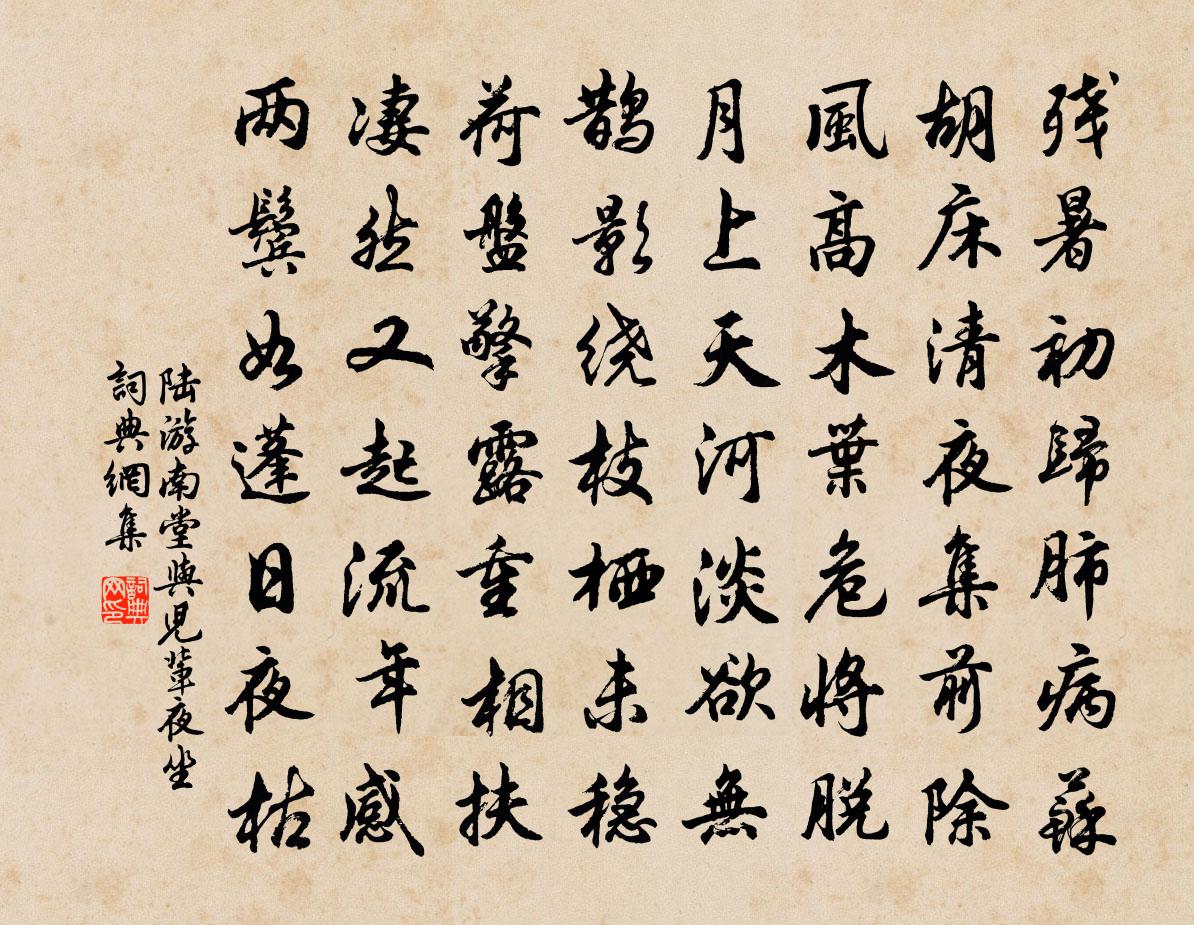 残暑初歸肺病蘇
胡床清夜集前除
風高木葉危将脱
月上天河淡欲無
鵲影绕枝栖未稳
荷盤擎露重相扶
凄然又起流年感
两鬓如蓬日夜枯
陆游南堂與兒辈夜坐
詞典網集
詞典网印